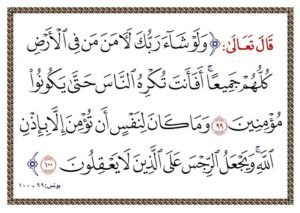 قَالَ تَعَالَىٰ: ﴿ وَلَوْ شَآءَ رَبُّكَ لَءَامَنَ مَن فِي ٱلْأَرْضِ
كُلُّهُمْ جَمِيعًا ۚ أَفَأَنتَ تُكْرِهُ ٱلنَّاسَ حَتَّىٰ يَكُونُوا۟
مُؤْمِنِينَ ٩٩ وَمَا كَانَ لِنَفْسٍ أَن تُؤْمِنَ إِلَّا بِإِذْنِ
ٱللَّهِ ۚ وَيَجْعَلُ ٱلرِّجْسَ عَلَى ٱلَّذِينَ لَا يَعْقِلُونَ ١٠٠ ﴾
يونس: ٩٩ - ١٠٠